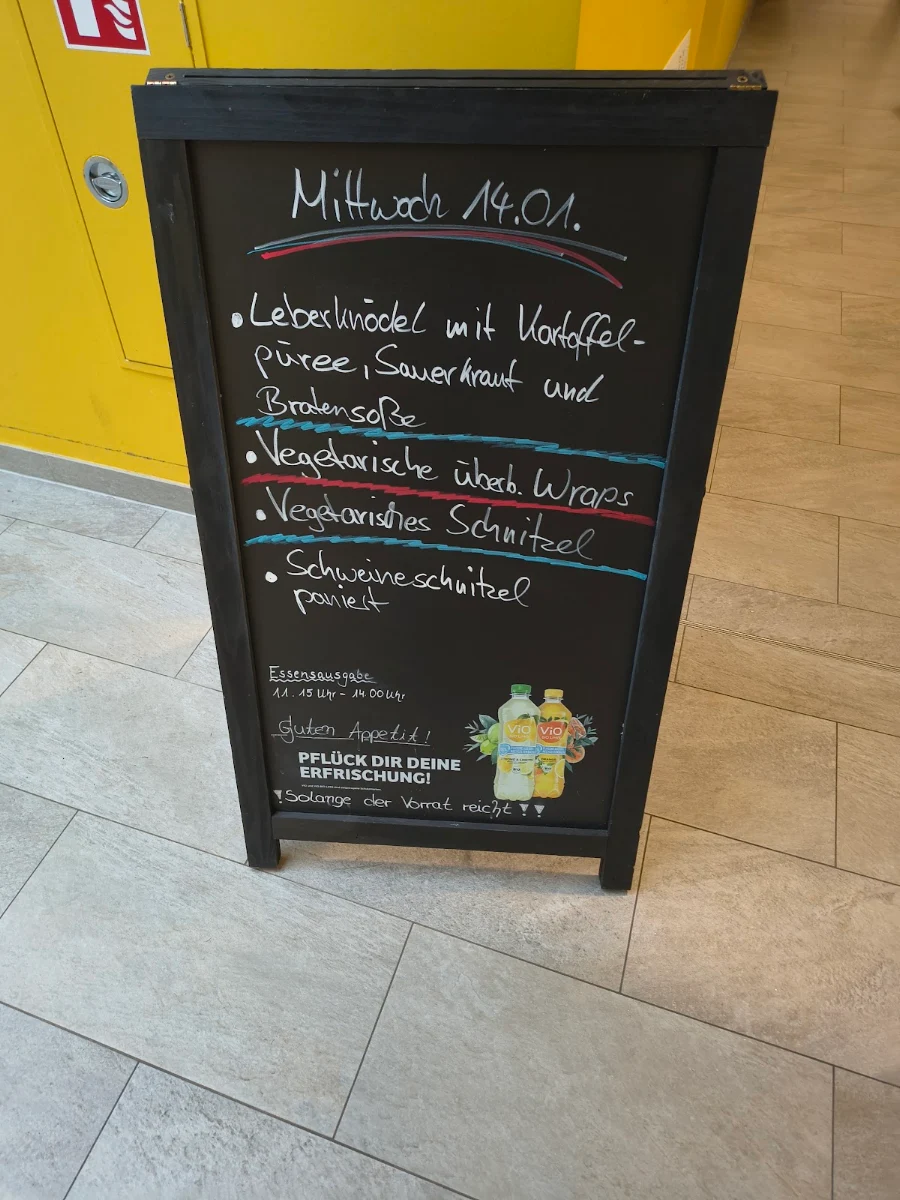 Mittwoch 14.01.
• Leberknödel mit Kartoffel-
püree, Sauerkraut und
Bratensoße
• Vegetarische überb. Wraps
• Vegetarisches Schnitzel
• Schweineschnitzel
paniert
Essensausgabe
11.15 Uhr - 14.00 Uhr
Guten Appetit!
PFLÜCK DIR DEINE
ERFRISCHUNG!
ViO ViO
Solange der Vorrat reicht